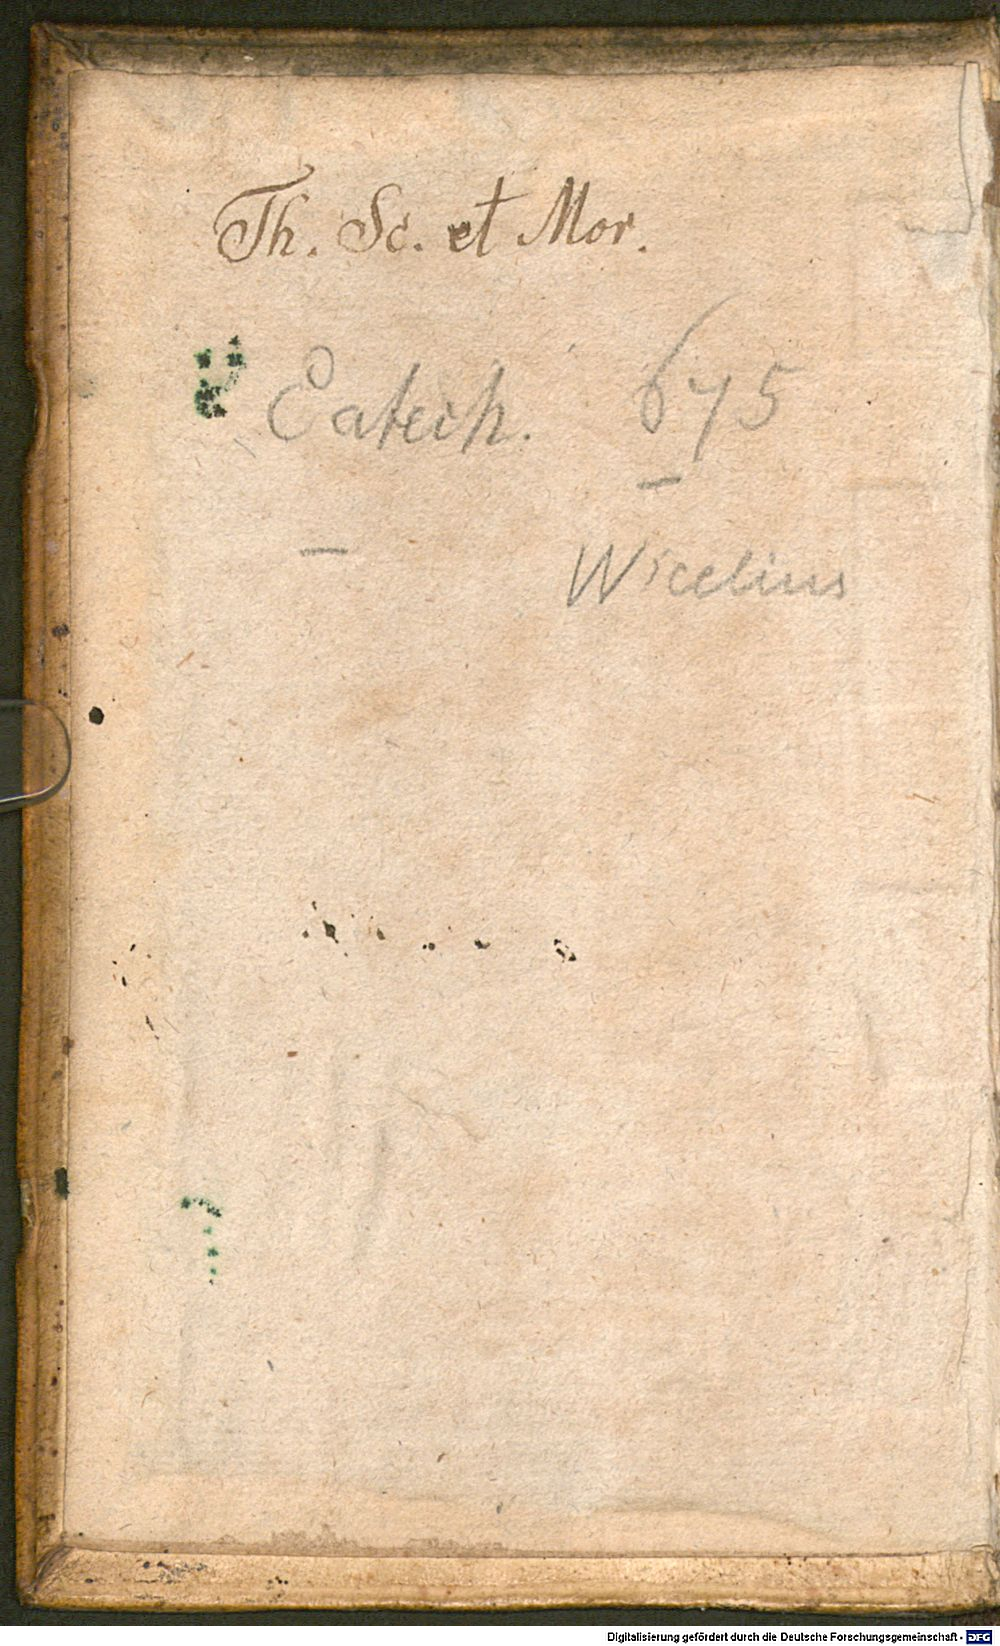 Th. Sc. et Mor.
Catech. 675
Wicelius
Digitalisierung gefördert durch die Deutsche Forschungsgemeinschaft - DFG